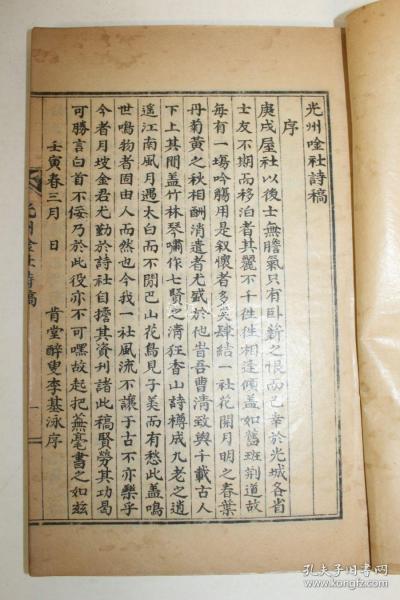 光州唫社詩稿
序
庚戌屋社以後士無膽氣只有臥薪之恨而已幸於光城各省
士友不期而移泊者其麗不千徃徃相逢傾盖如舊班荆道故
每有一場吟觴用是叙懷者多矣肆結一社花開月明之春葉
丹菊黃之秋相酬消遣者尤盛於他昔吾曹清致與千載古人
下上其間盖竹林琴嘯作七賢之清狂香山詩樽成九老之遺
遥江南風月遇太白而不閒巴山花鳥見子美而有愁此盖鳴
世鳴物者固由人而然也今我一社風流不讓于古不亦樂乎
今者月坡金君尤勤於詩社自擔其資刋諸此稿賢勞其功曷
可勝言白首不佞乃於此役亦不可嘿故起把蕪毫書之如玆
壬寅春三月 日 肯堂醉叟李基泳序
光州唫社詩稿
一
孔夫子旧书网
www.kongfz.com